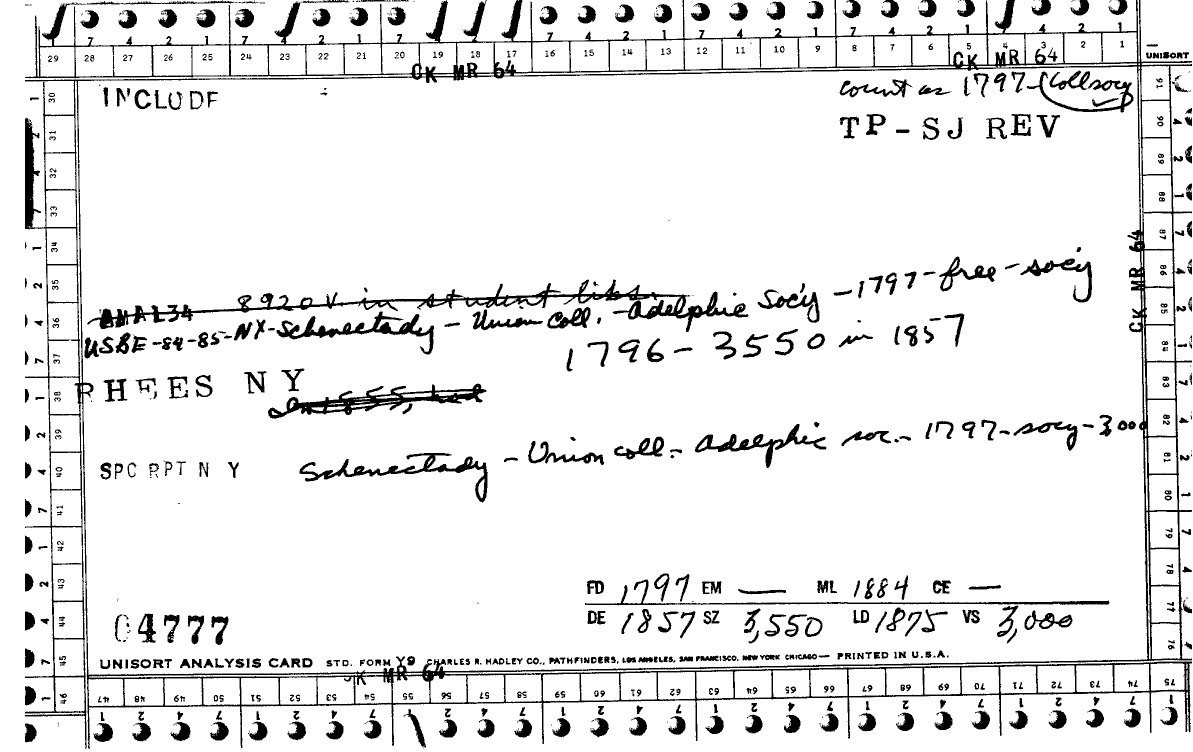 7 4 2 1 7 4 2 1 7 4 2 1 7 4 2 1 7 4 2 1 7 4 2 1
29 28 27 26 25 24 23 22 21 20 19 18 17 16 15 14 13 12 11 10 9 8 7 6 5 4 3 2 1
CK MR 64 CK MR 64
UNISORT
INCLUDE
count as 1797-(Collsocy)
TP-SJ REV
CK MR 64
AMAL34 8920V. in student libs.
USBE-84-85-NX-Schenectady - Union Coll. - Adelphic Soc'y - 1797-free-soc'y
1796-3550 in 1857
RHEES NY
In 1855, had
SPC RPT N Y Schenectady - Union coll. - Adelphic soc. - 1797-socy-3,000
FD 1797 EM — ML 1884 CE —
DE 1857 SZ 3,550 LD 1875 VS 3,000
04777
UNISORT ANALYSIS CARD STD. FORM Y9 CHARLES R. HADLEY CO., PATHFINDERS, LOS ANGELES, SAN FRANCISCO, NEW YORK CHICAGO— PRINTED IN U.S.A.
CK MR 64
47 48 49 50 51 52 53 54 55 56 57 58 59 60 61 62 63 64 65 66 67 68 69 70 71 72 73 74 75
30 31 32 33 34 35 36 37 38 39 40 41 42 43 44 45 46
91 90 89 88 87 86 85 84 83 82 81 80 79 78 77 76